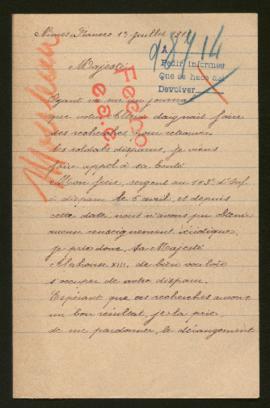 Nimes (France) 13 Juillet
28714
Majesté
Pedir informes
Que se hace así
Devolver
Fecho
ea.
Ayant vu sur un journal
que votre Altesse daignait faire
des recherches pour retrouver
les soldats disparus, je viens
faire appel à sa bonté
Mon frère, sergent au 163e d'Inf
a disparu le 5 avril, et depuis
cette date nous n'avons pu obtenir
aucun renseignement véridique,
je prie donc, Sa Majesté
Alphonse XIII, de bien vouloir
s'occuper de notre disparu.
Espérant que ces recherches auront
un bon résultat, je la prie
de me pardonner le dérangement